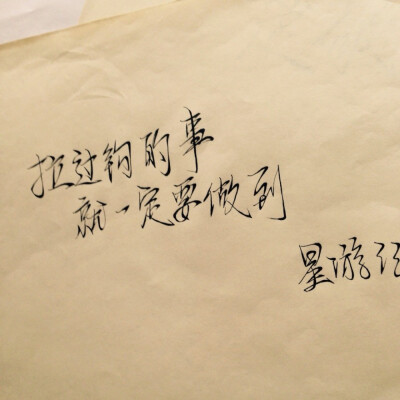 拉过钩的事
就一定要做到
星游记